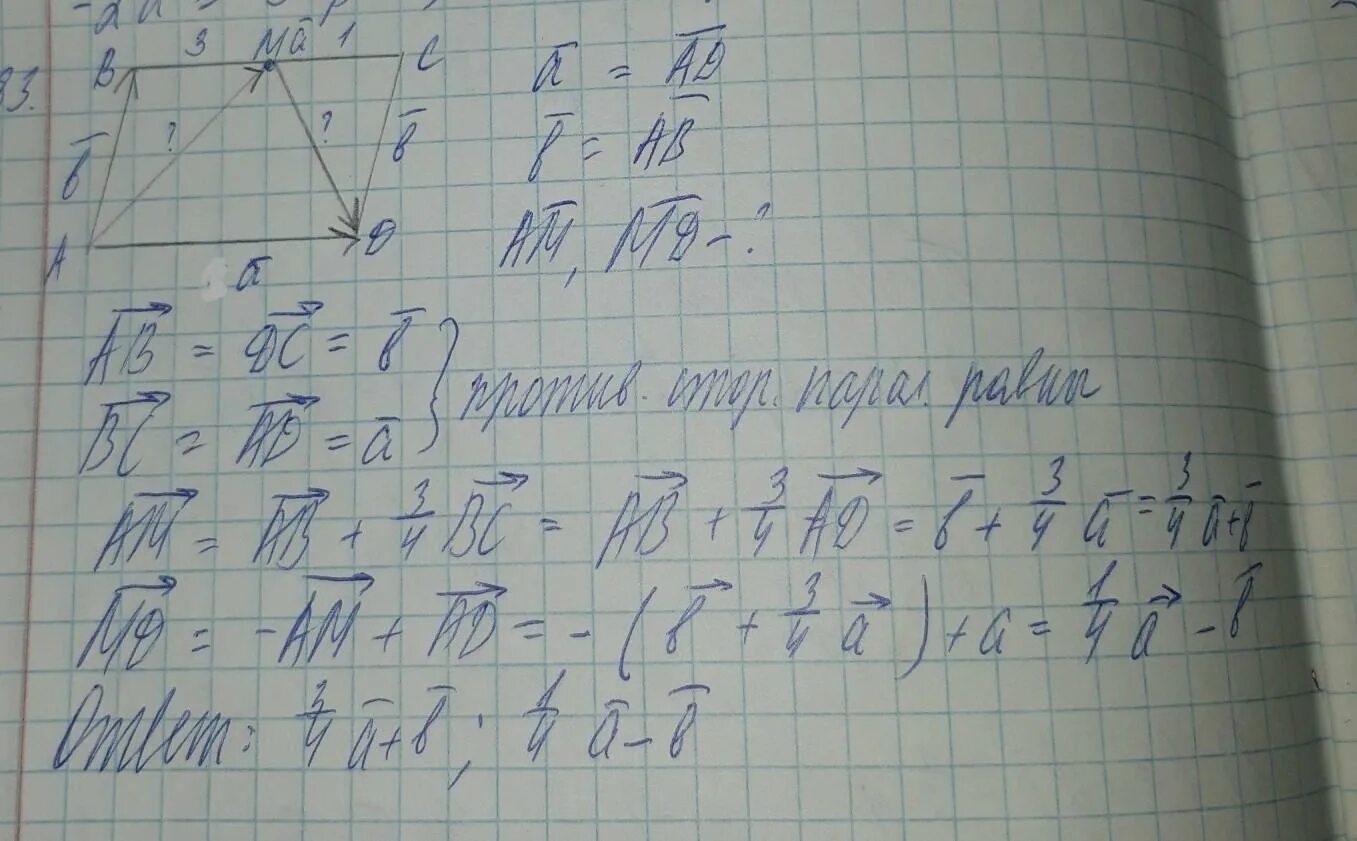 -2a
83.
B 3 M ā 1 C
b̄ ? ? b̄
A ā D
ā = A̅D̅
b̄ = A̅B̅
A̅M̅, M̅D̅ - ?
AB⃗ = DC⃗ = b̄
BC⃗ = AD⃗ = ā
} против. стор. парал. равны
AM⃗ = AB⃗ + 3/4 BC⃗ = AB⃗ + 3/4 AD⃗ = b̄ + 3/4 ā = 3/4 ā + b̄
MD⃗ = -AM⃗ + AD⃗ = - (b⃗ + 3/4 a⃗) + a = 1/4 a⃗ - b̄
Ответ: 3/4 ā + b̄ ; 1/4 ā - b̄